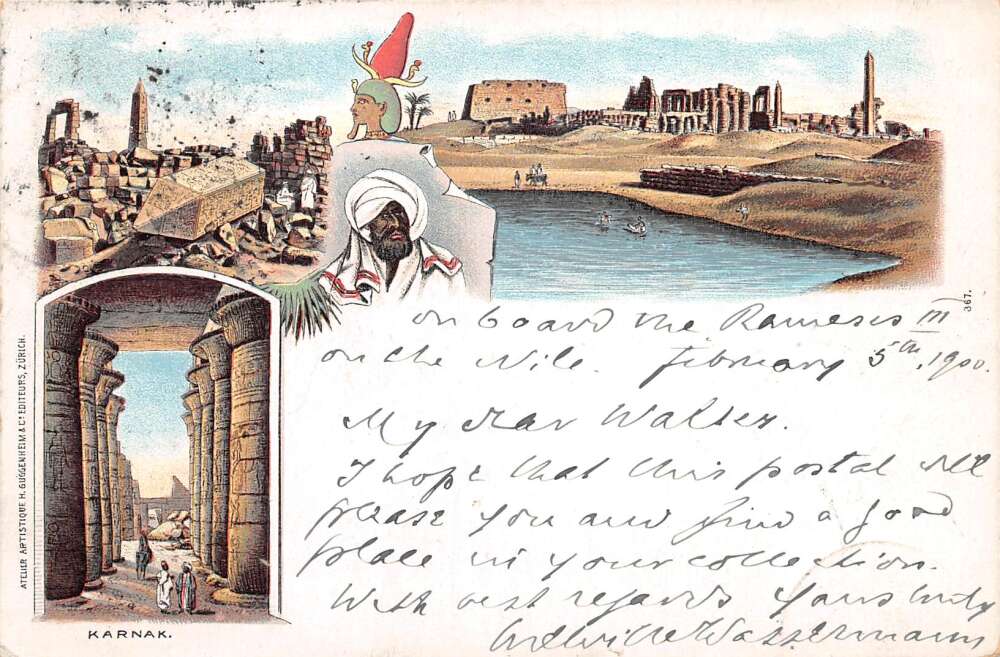 on board the Rameses III
on the Nile. February 5th, 1900.
My dear Walter.
I hope that this postal will
please you and find a good
place in your collection.
With best regards Yours truly
Melville Wassermann
367.
ATELIER ARTISTIQUE H. GUGGENHEIM & Co EDITEURS, ZÜRICH.
KARNAK.